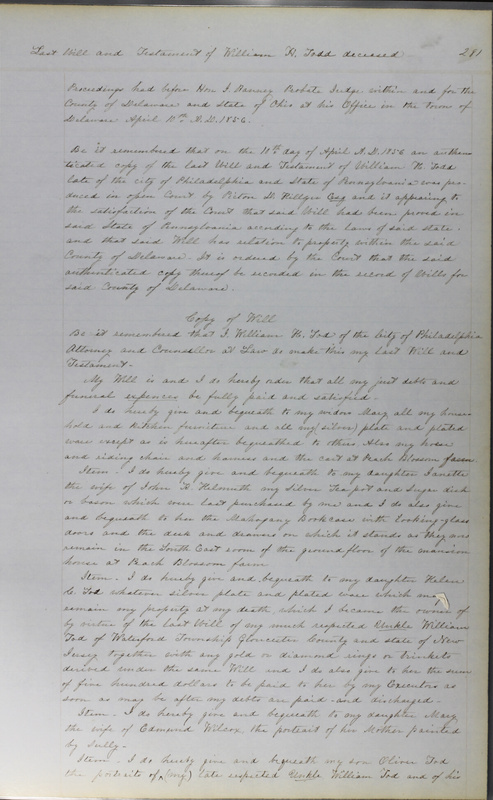 Last Will and Testament of William H. Todd deceased 281
Proceedings had before Hon J. Ranney Probate Judge within and for the
County of Delaware and State of Ohio at his Office in the town of
Delaware April 11th A.D. 1856.
Be it remembered that on the 11th day of April A.D. 1856 an authen
ticated copy of the last Will and Testament of William H. Tod
late of the city of Philadelphia and State of Pennsylvania was pro-
duced in open Court by Esq and it appearing to
the satisfaction of the Court that said Will had been proved in
said State of Pennsylvania according to the laws of said state.
and that said Will has relation to property within the said
County of Delaware. It is ordered by the Court that the said
authenticated copy thereof be recorded in the record of Wills for
said County of Delaware.
Copy of Will
Be it remembered that I William H. Tod of the City of Philadelphia
Attorney and Counsellor at Law do make this my last Will and
Testament-
My Will is and I do hereby order that all my just debts and
funeral expences be fully paid and satisfied-
I do hereby give and bequeath to my widow Mary all my house
hold and kitchen furniture and all my (silver) plate and plated
ware except as is hereafter bequeathed to others Also my horse
and riding chair and harness and the cart at Peach Blossom farm
Item- I do hereby give and bequeath to my daughter Janette
the wife of John K. Helmuth my Silver Teapot and Sugar dish
or bason which were last purchased by me and I do also give
and bequeath to her the Mahogany Bookcase with Looking glass
doors and the desk and drawers on which it stands as they now
remain in the South East room of the ground floor of the mansion
house at Peach Blossom farm
Item- I do hereby give and bequeath to my daughter Helen
C. Tod whatever silver plate and plated ware which may
remain my property at my death, which I became the owner of
by virtue of the last Will of my much respected Unkle William
Tod of Waterford Township Gloucester County and state of New
Jersey together with any gold or diamond rings or trinkets
derived under the same Will and I do also give to her the sum
of five hundred dollars to be paid to her by my Executors as
soon as may be after my debts are paid and discharged-
Item- I do hereby give and bequeath to my daughter Mary
the wife of Edmund Wilcox the portrait of her Mother painted
by Sully-
Item- I do hereby give and bequeath my son Oliver Tod
the portraits of (my) late respected Unkle William Tod and of his